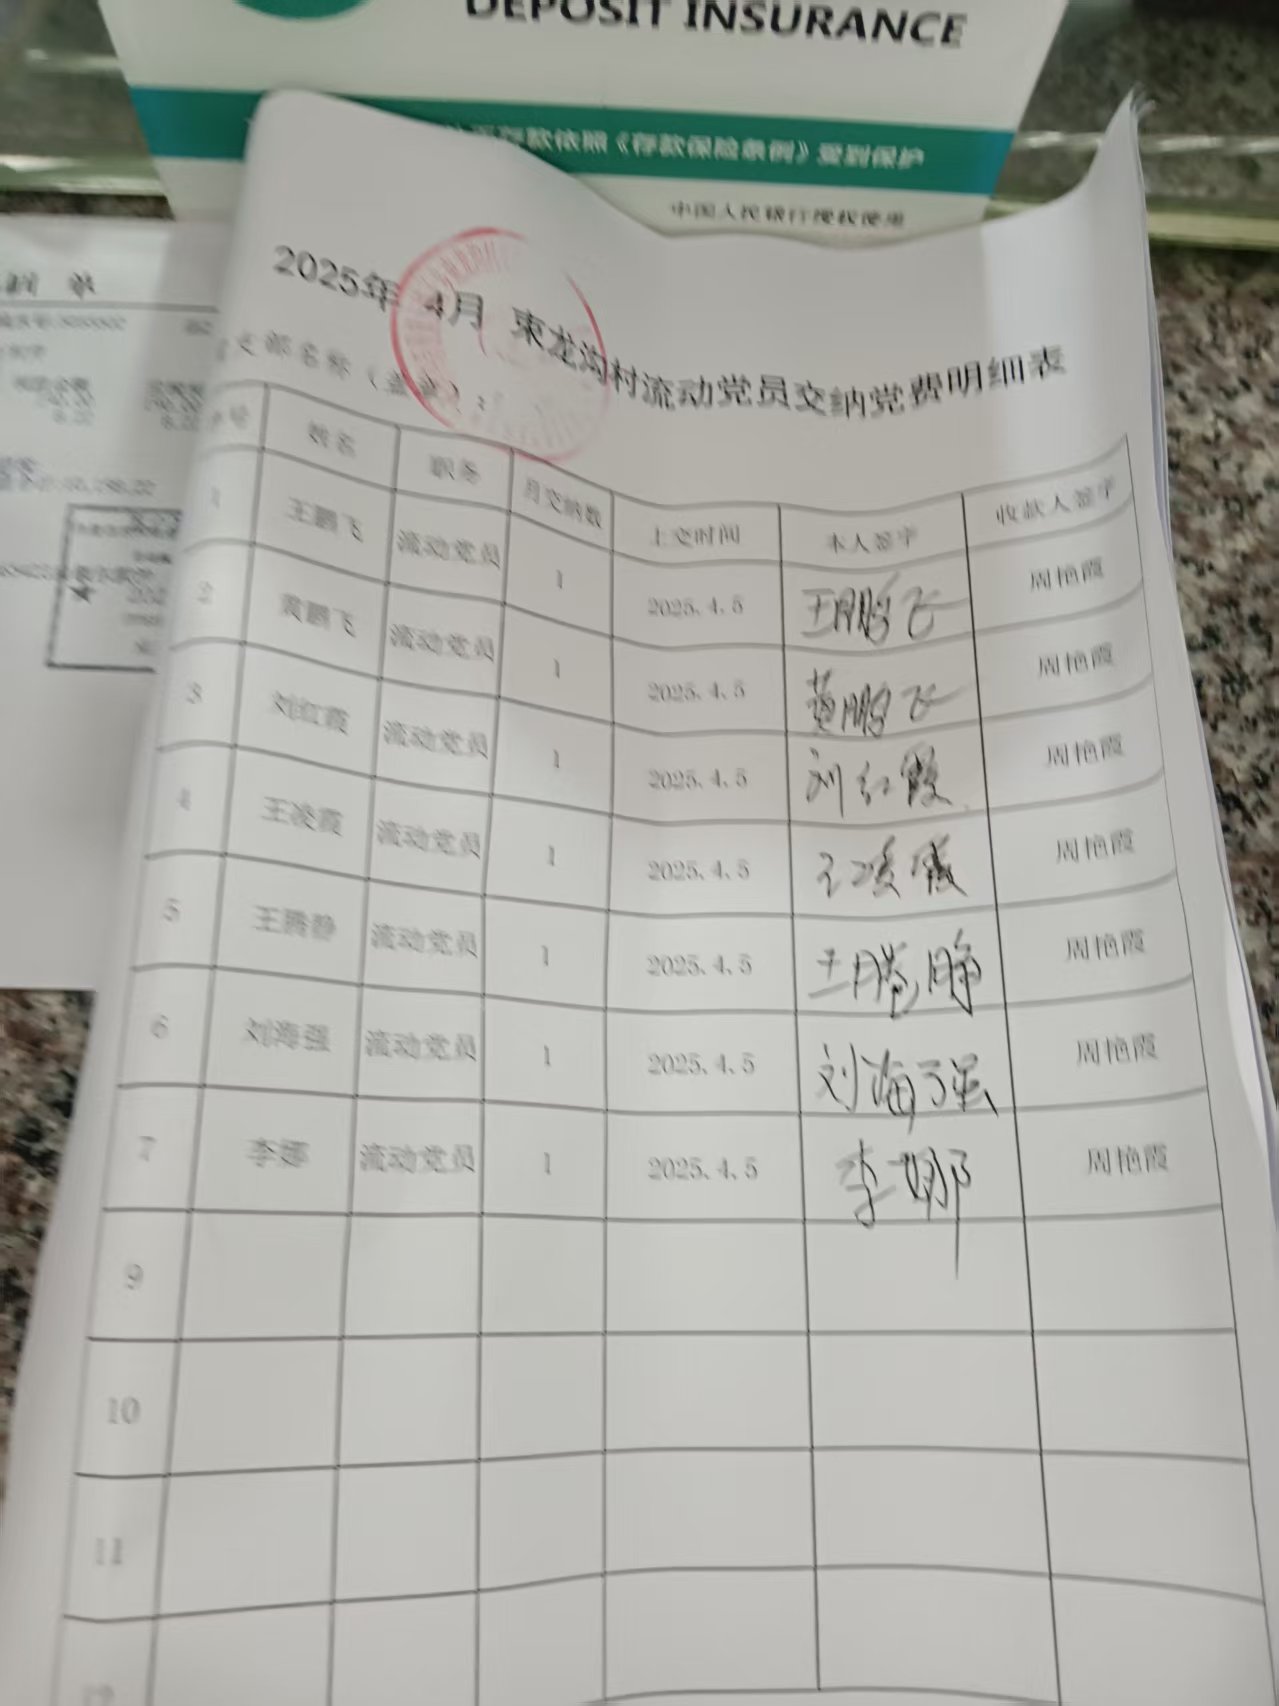 DEPOSIT INSURANCE
存款依照《存款保险条例》受到保护
中国人民银行授权使用
2025年 4月 東龙沟村流动党员交纳党费明细表
支部名称（盖章）：
序号 姓名 职务 月交纳数 上交时间 本人签字 收款人签字
1 王鹏飞 流动党员 1 2025.4.5 王鹏飞 周艳霞
2 黄鹏飞 流动党员 1 2025.4.5 黄鹏飞 周艳霞
3 刘红霞 流动党员 1 2025.4.5 刘红霞 周艳霞
4 王凌霞 流动党员 1 2025.4.5 王凌霞 周艳霞
5 王腾静 流动党员 1 2025.4.5 王腾静 周艳霞
6 刘海强 流动党员 1 2025.4.5 刘海强 周艳霞
7 李娜 流动党员 1 2025.4.5 李娜 周艳霞
9
10
11
12